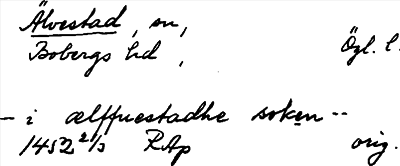 Älvestad, sn,
Bobergs hd, Ögl. l.
— i ælffuestadhe soken --
1452 2/3 RAp orig.